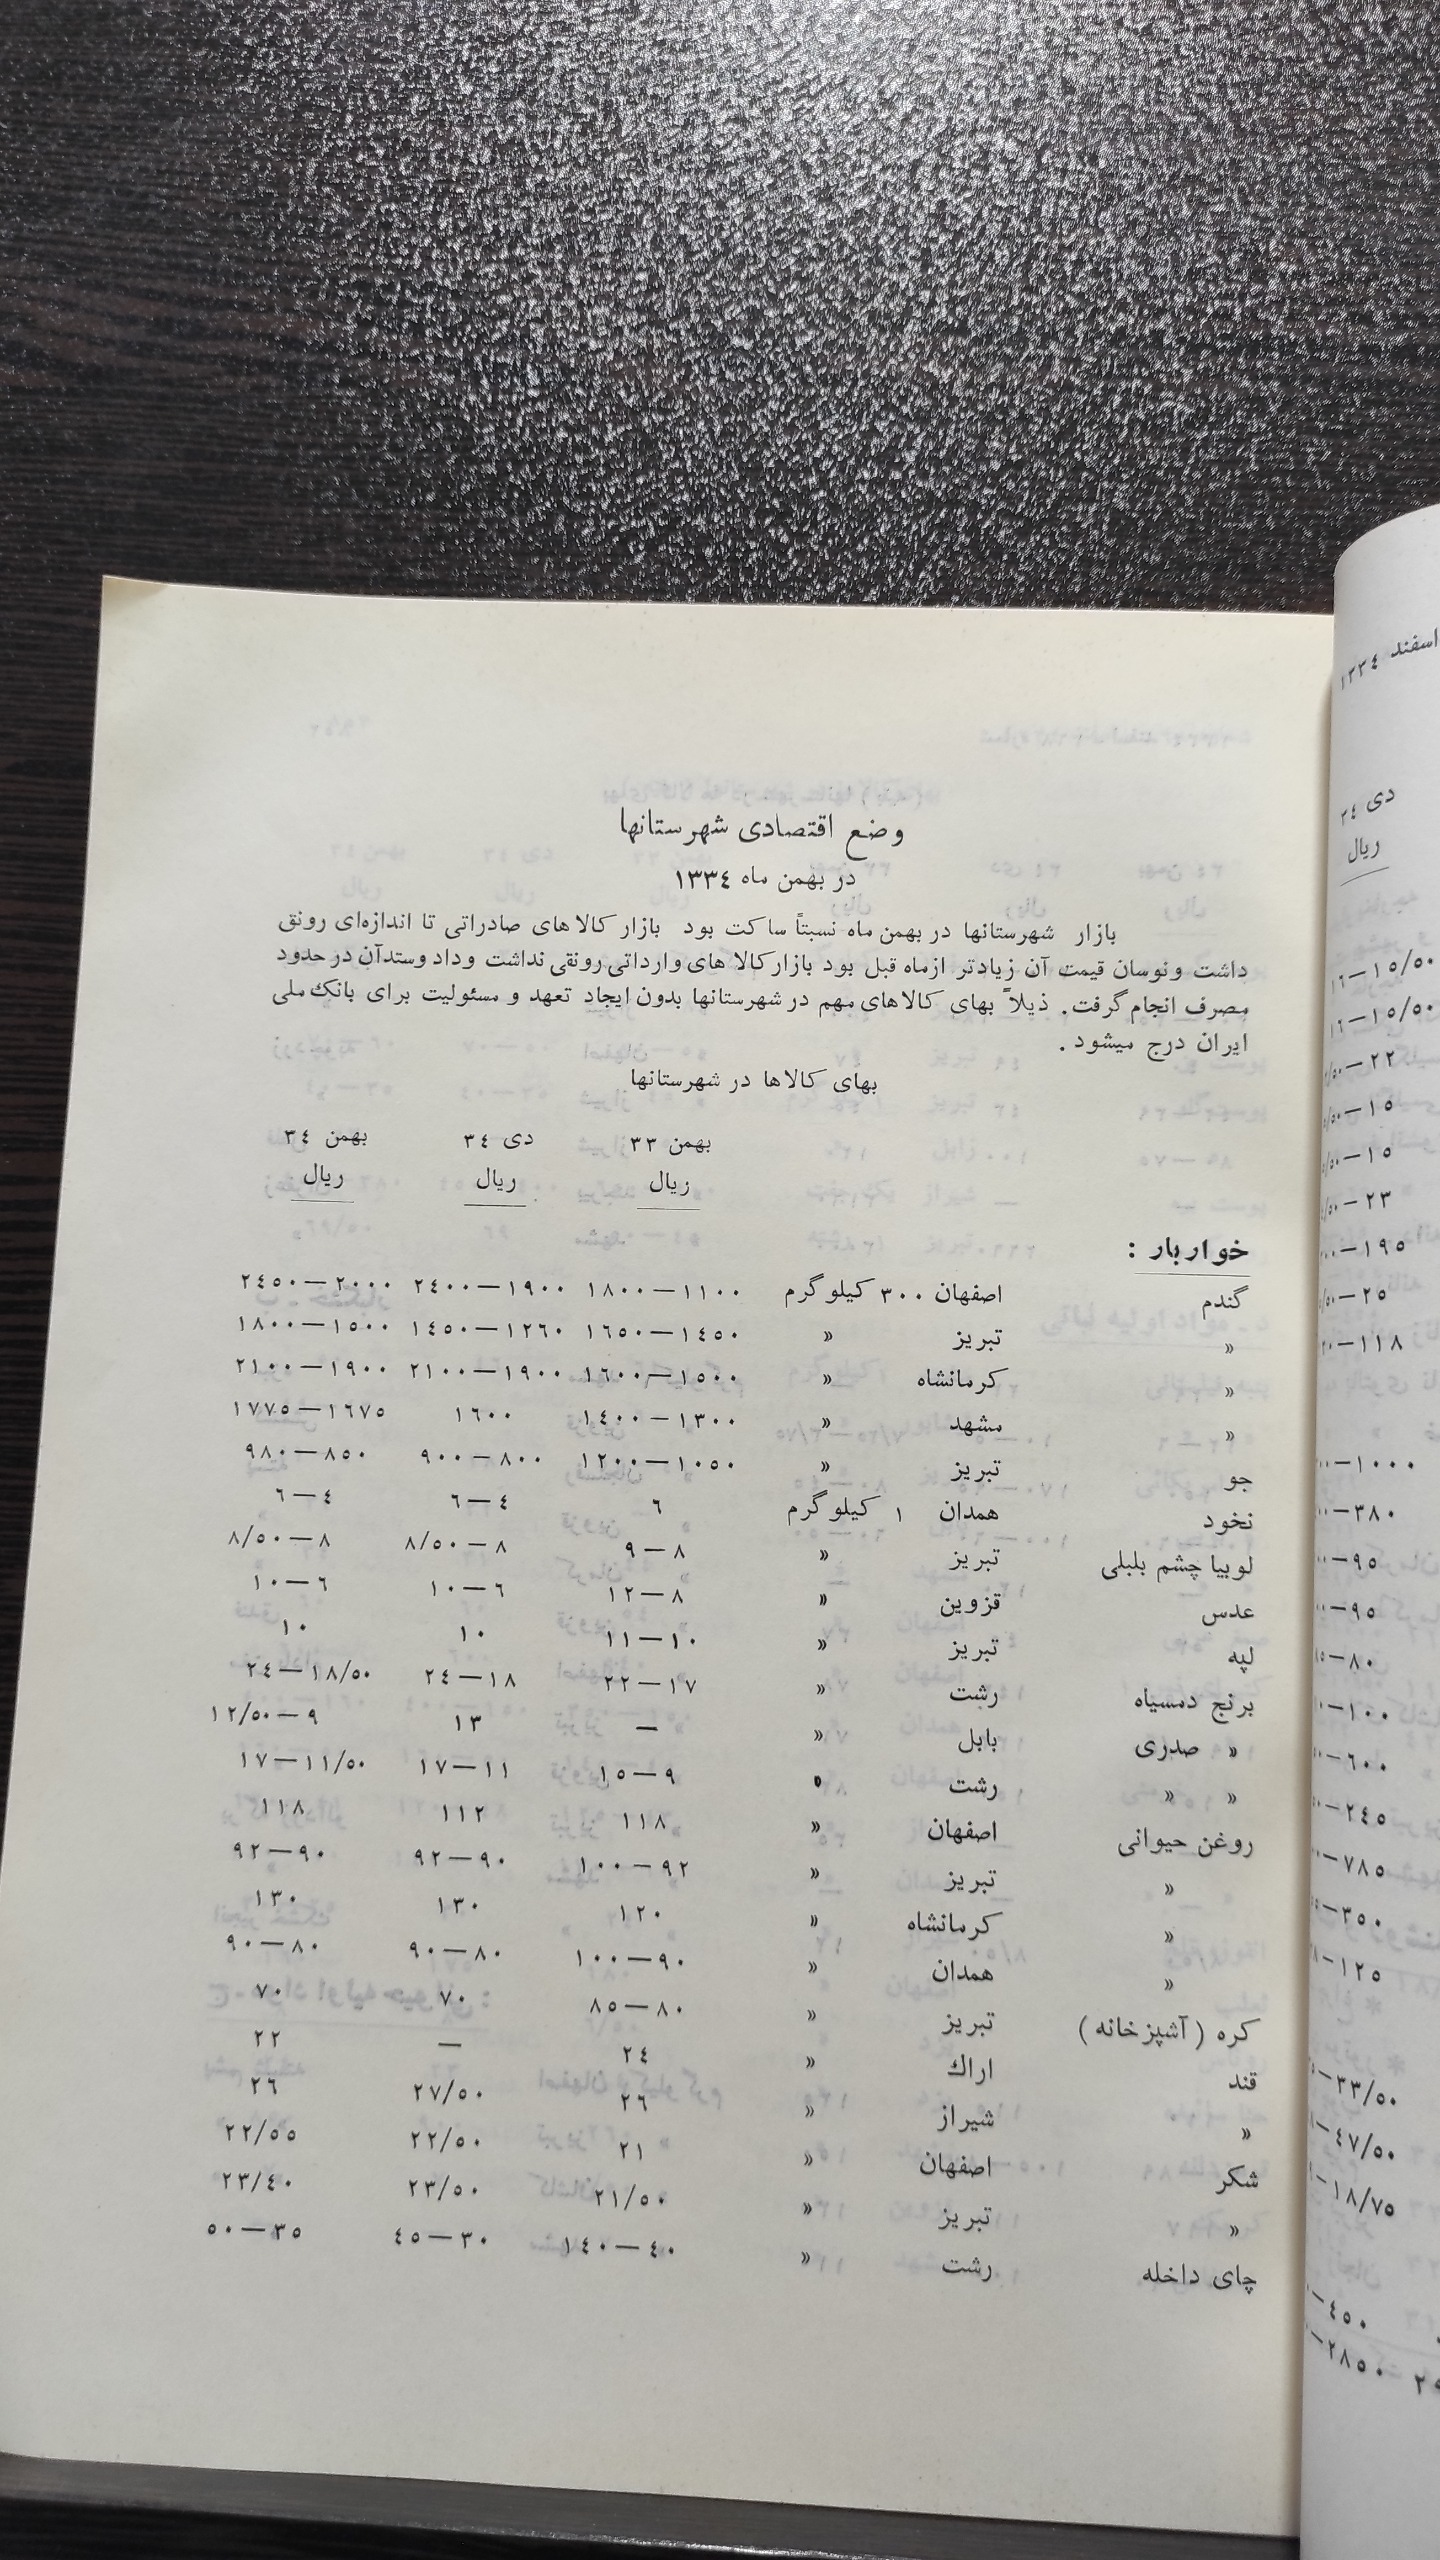 وضع اقتصادی شهرستانها
در بهمن ماه ۱۳۳٤
بازار شهرستانها در بهمن ماه نسبتاً ساکت بود بازار کالاهای صادراتی تا اندازه‌ای رونق
داشت ونوسان قیمت آن زیادتر ازماه قبل بود بازارکالا های وارداتی رونقی نداشت وداد وستدآن درحدود
مصرف انجام گرفت. ذیلاً بهای کالاهای مهم درشهرستانها بدون ایجاد تعهد و مسئولیت برای بانک ملی
ایران درج میشود.
بهای کالاها در شهرستانها
بهمن ۳۳ دی ۳٤ بهمن ۳٤
ریال ریال ریال
خواربار :
گندم اصفهان ۳۰۰ کیلوگرم ۱۱۰۰—۱۸۰۰ ۱۹۰۰—۲٤۰۰ ۲۰۰۰—۲٤۵۰
« تبریز « ۱٤۵۰—۱٦۵۰ ۱۲٦۰—۱٤۵۰ ۱۵۰۰—۱۸۰۰
« کرمانشاه « ۱۵۰۰—۱٦۰۰ ۱۹۰۰—۲۱۰۰ ۱۹۰۰—۲۱۰۰
« مشهد « ۱۳۰۰—۱٤۰۰ ۱٦۰۰ ۱٦۷۵—۱۷۷۵
جو تبریز « ۱۰۵۰—۱۲۰۰ ۸۰۰—۹۰۰ ۸۵۰—۹۸۰
نخود همدان ۱ کیلوگرم ٦ ٤—٦ ٤—٦
لوبیا چشم بلبلی تبریز « ۸—۹ ۸—۸/۵۰ ۸—۸/۵۰
عدس قزوین « ۸—۱۲ ٦—۱۰ ٦—۱۰
لپه تبریز « ۱۰—۱۱ ۱۰ ۱۰
برنج دمسیاه رشت « ۱۷—۲۲ ۱۸—۲٤ ۱۸/۵۰—۲٤
« صدری بابل « — ۱۳ ۹—۱۲/۵۰
« « رشت « ۹—۱۵ ۱۱—۱۷ ۱۱/۵۰—۱۷
روغن حیوانی اصفهان « ۱۱۸ ۱۱۲ ۱۱۸
« تبریز « ۹۲—۱۰۰ ۹۰—۹۲ ۹۰—۹۲
« کرمانشاه « ۱۲۰ ۱۳۰ ۱۳۰
« همدان « ۹۰—۱۰۰ ۸۰—۹۰ ۸۰—۹۰
کره (آشپزخانه) تبریز « ۸۰—۸۵ ۷۰ ۷۰
قند اراک « ۲٤ — ۲۲
« شیراز « ۲٦ ۲۷/۵۰ ۲٦
شکر اصفهان « ۲۱ ۲۲/۵۰ ۲۲/۵۵
« تبریز « ۲۱/۵۰ ۲۳/۵۰ ۲۳/٤۰
چای داخله رشت « ٤۰—۱٤۰ ۳۰—٤۵ ۳۵—۵۰
اسفند ۱۳۳٤
دی ۳٤
ریال